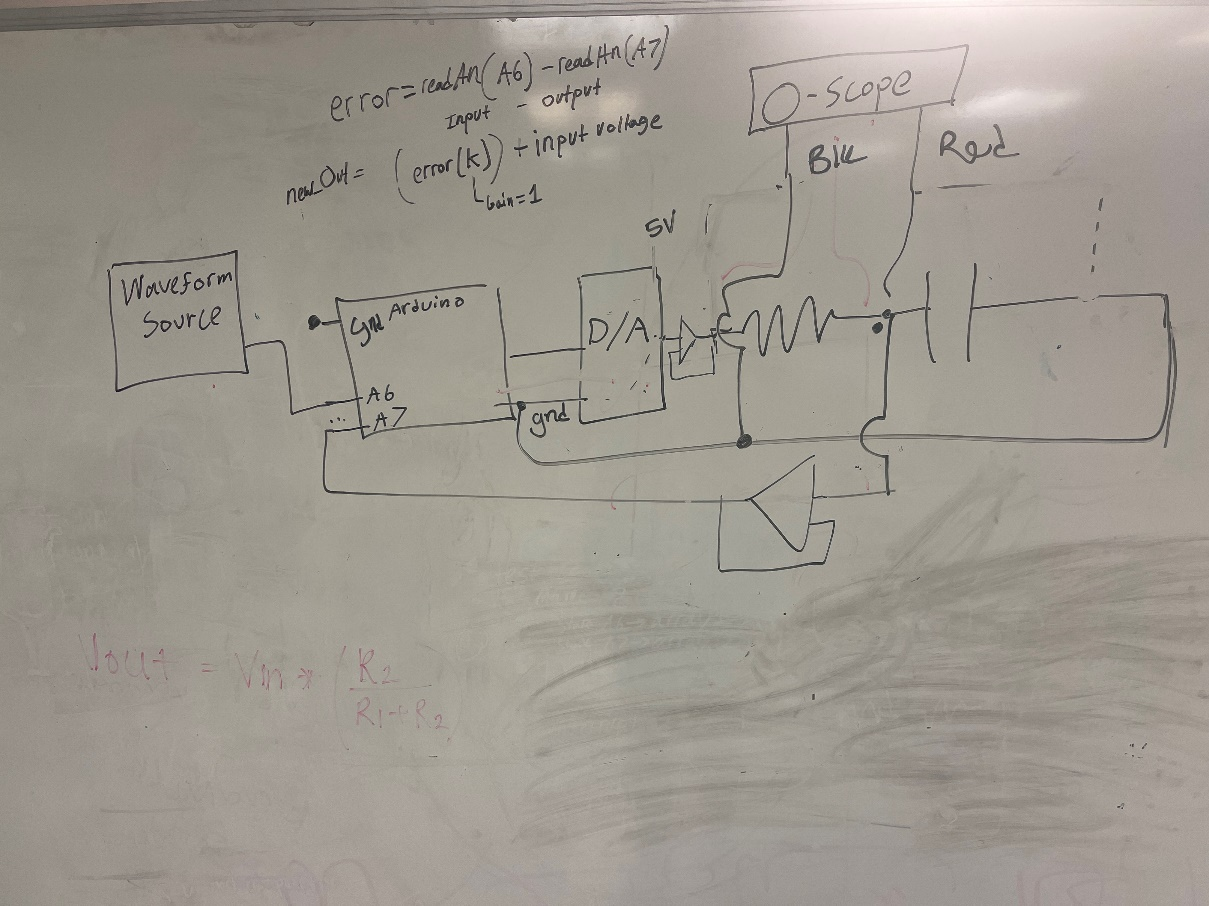 error = readAn(A6) - readAn(A7)
Input - output
new_Out = (error(k)) + input voltage
Gain = 1
O-Scope
Blk
Red
5V
Waveform
Source
gnd Arduino
D/A
A6
...
A7
gnd
Vout = Vin * (R2
R1+R2